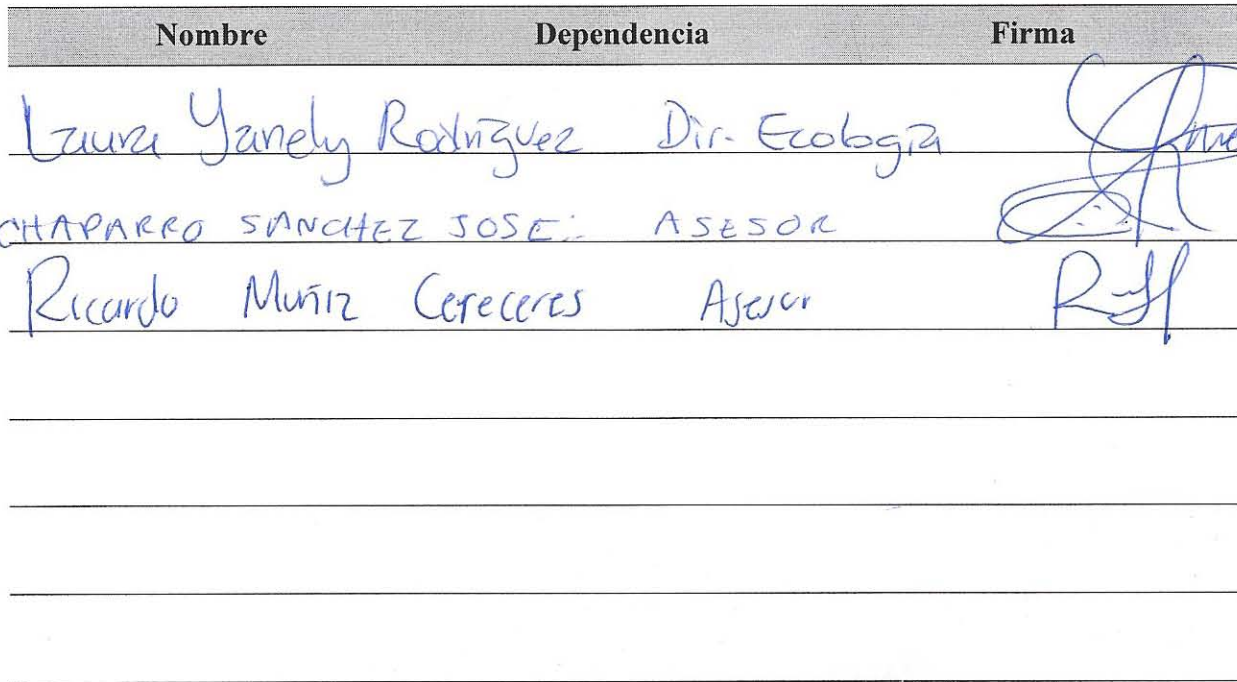 Nombre Dependencia Firma
Laura Yanely Rodríguez Dir. Ecología
CHAPARRO SANCHEZ JOSE: ASESOR
Ricardo Muñiz Cereceres Asesor